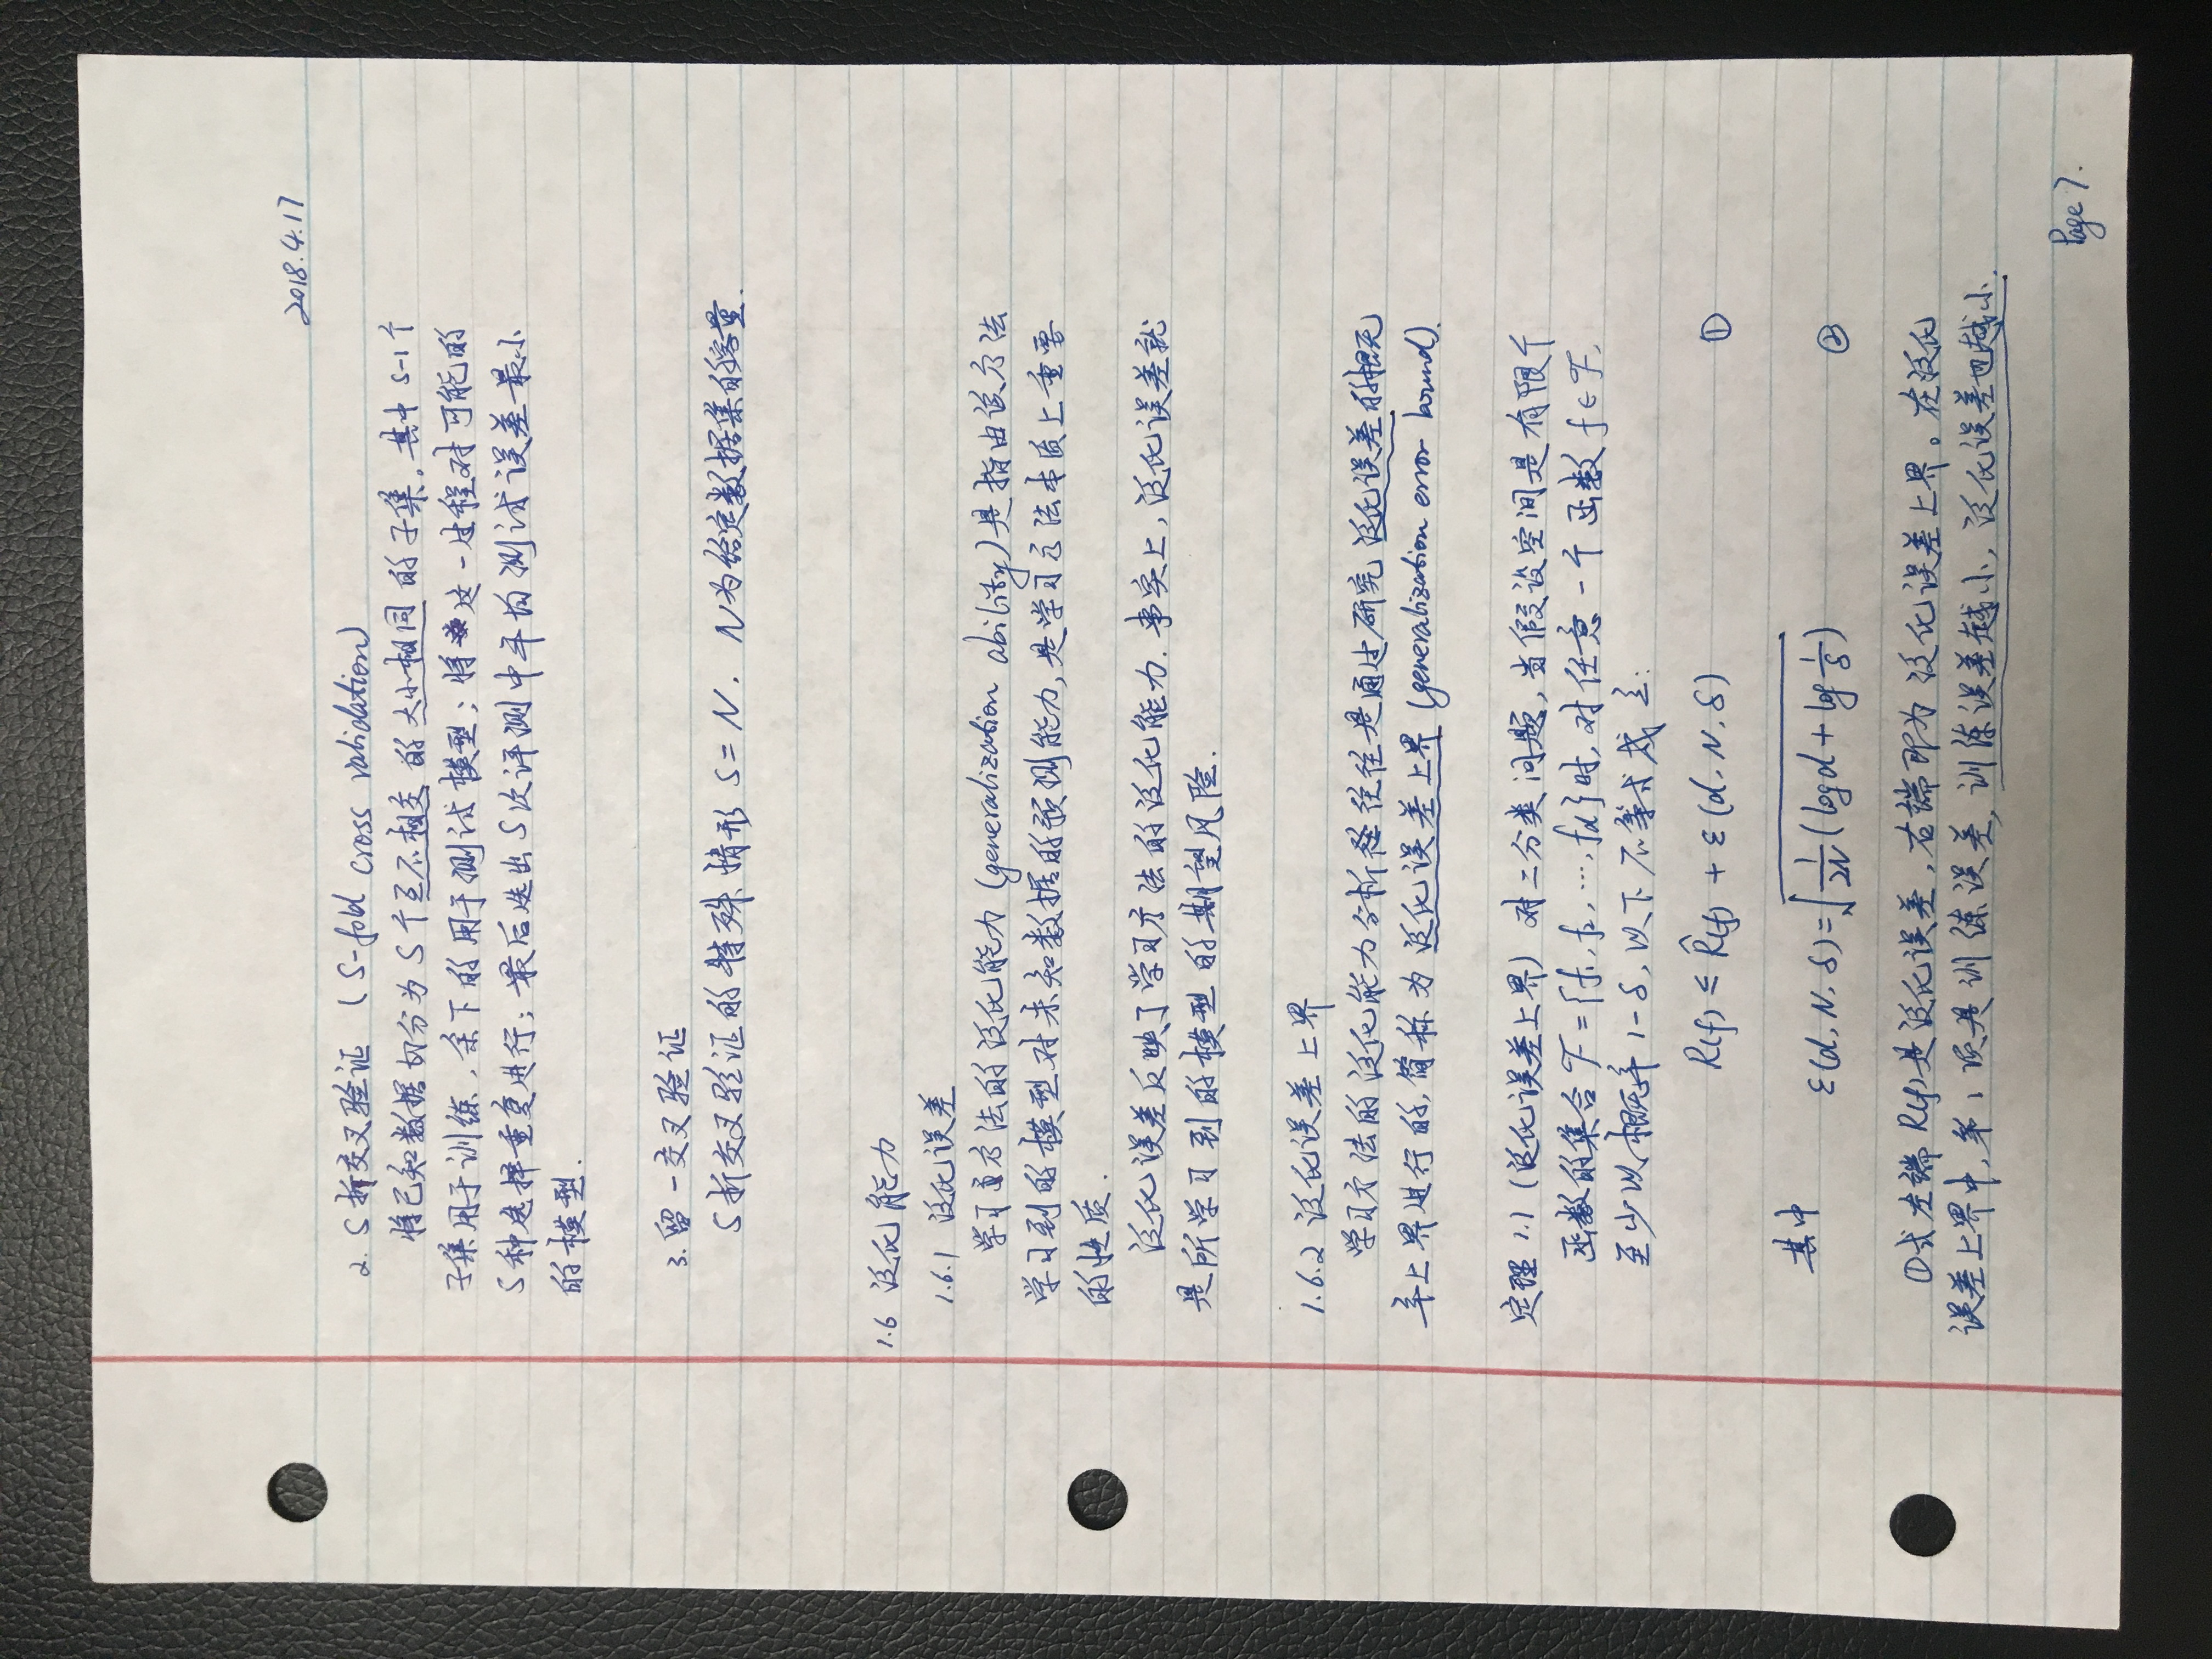 2018.4.17
2. S折交叉验证 (S-fold cross validation)
将已知数据切分为S个互不相交的大小相同的子集。其中S-1个
子集用于训练,余下的用于测试模型;将这一过程对可能的
S种选择重复进行;最后选出S次评测中平均测试误差最小
的模型.
3. 留一交叉验证
S折交叉验证的特殊情形 S=N. N为给定数据集的容量.
1.6 泛化能力
1.6.1 泛化误差
学习方法的泛化能力 (generalization ability) 是指由该方法
学习到的模型对未知数据的预测能力,是学习方法本质上重要
的性质.
泛化误差反映了学习方法的泛化能力. 事实上,泛化误差就
是所学习到的模型的期望风险.
1.6.2 泛化误差上界
学习方法的泛化能力分析往往是通过研究泛化误差的概
率上界进行的,简称为泛化误差上界 (generalization error bound).
定理 1.1 (泛化误差上界) 对二分类问题,当假设空间是有限个
函数的集合 F={f₁,f₂,…,fd}时,对任意一个函数f∈F,
至少以概率1-δ,以下不等式成立:
R(f) ≤ R̂(f) + ε(d,N,δ) ①
其中
ε(d,N,δ)=√(1/2N (log d + log 1/δ)) ②
①式左端R(f)是泛化误差,右端即为泛化误差上界。在泛化
误差上界中,第1项是训练误差,训练误差越小,泛化误差也越小.
Page 7.